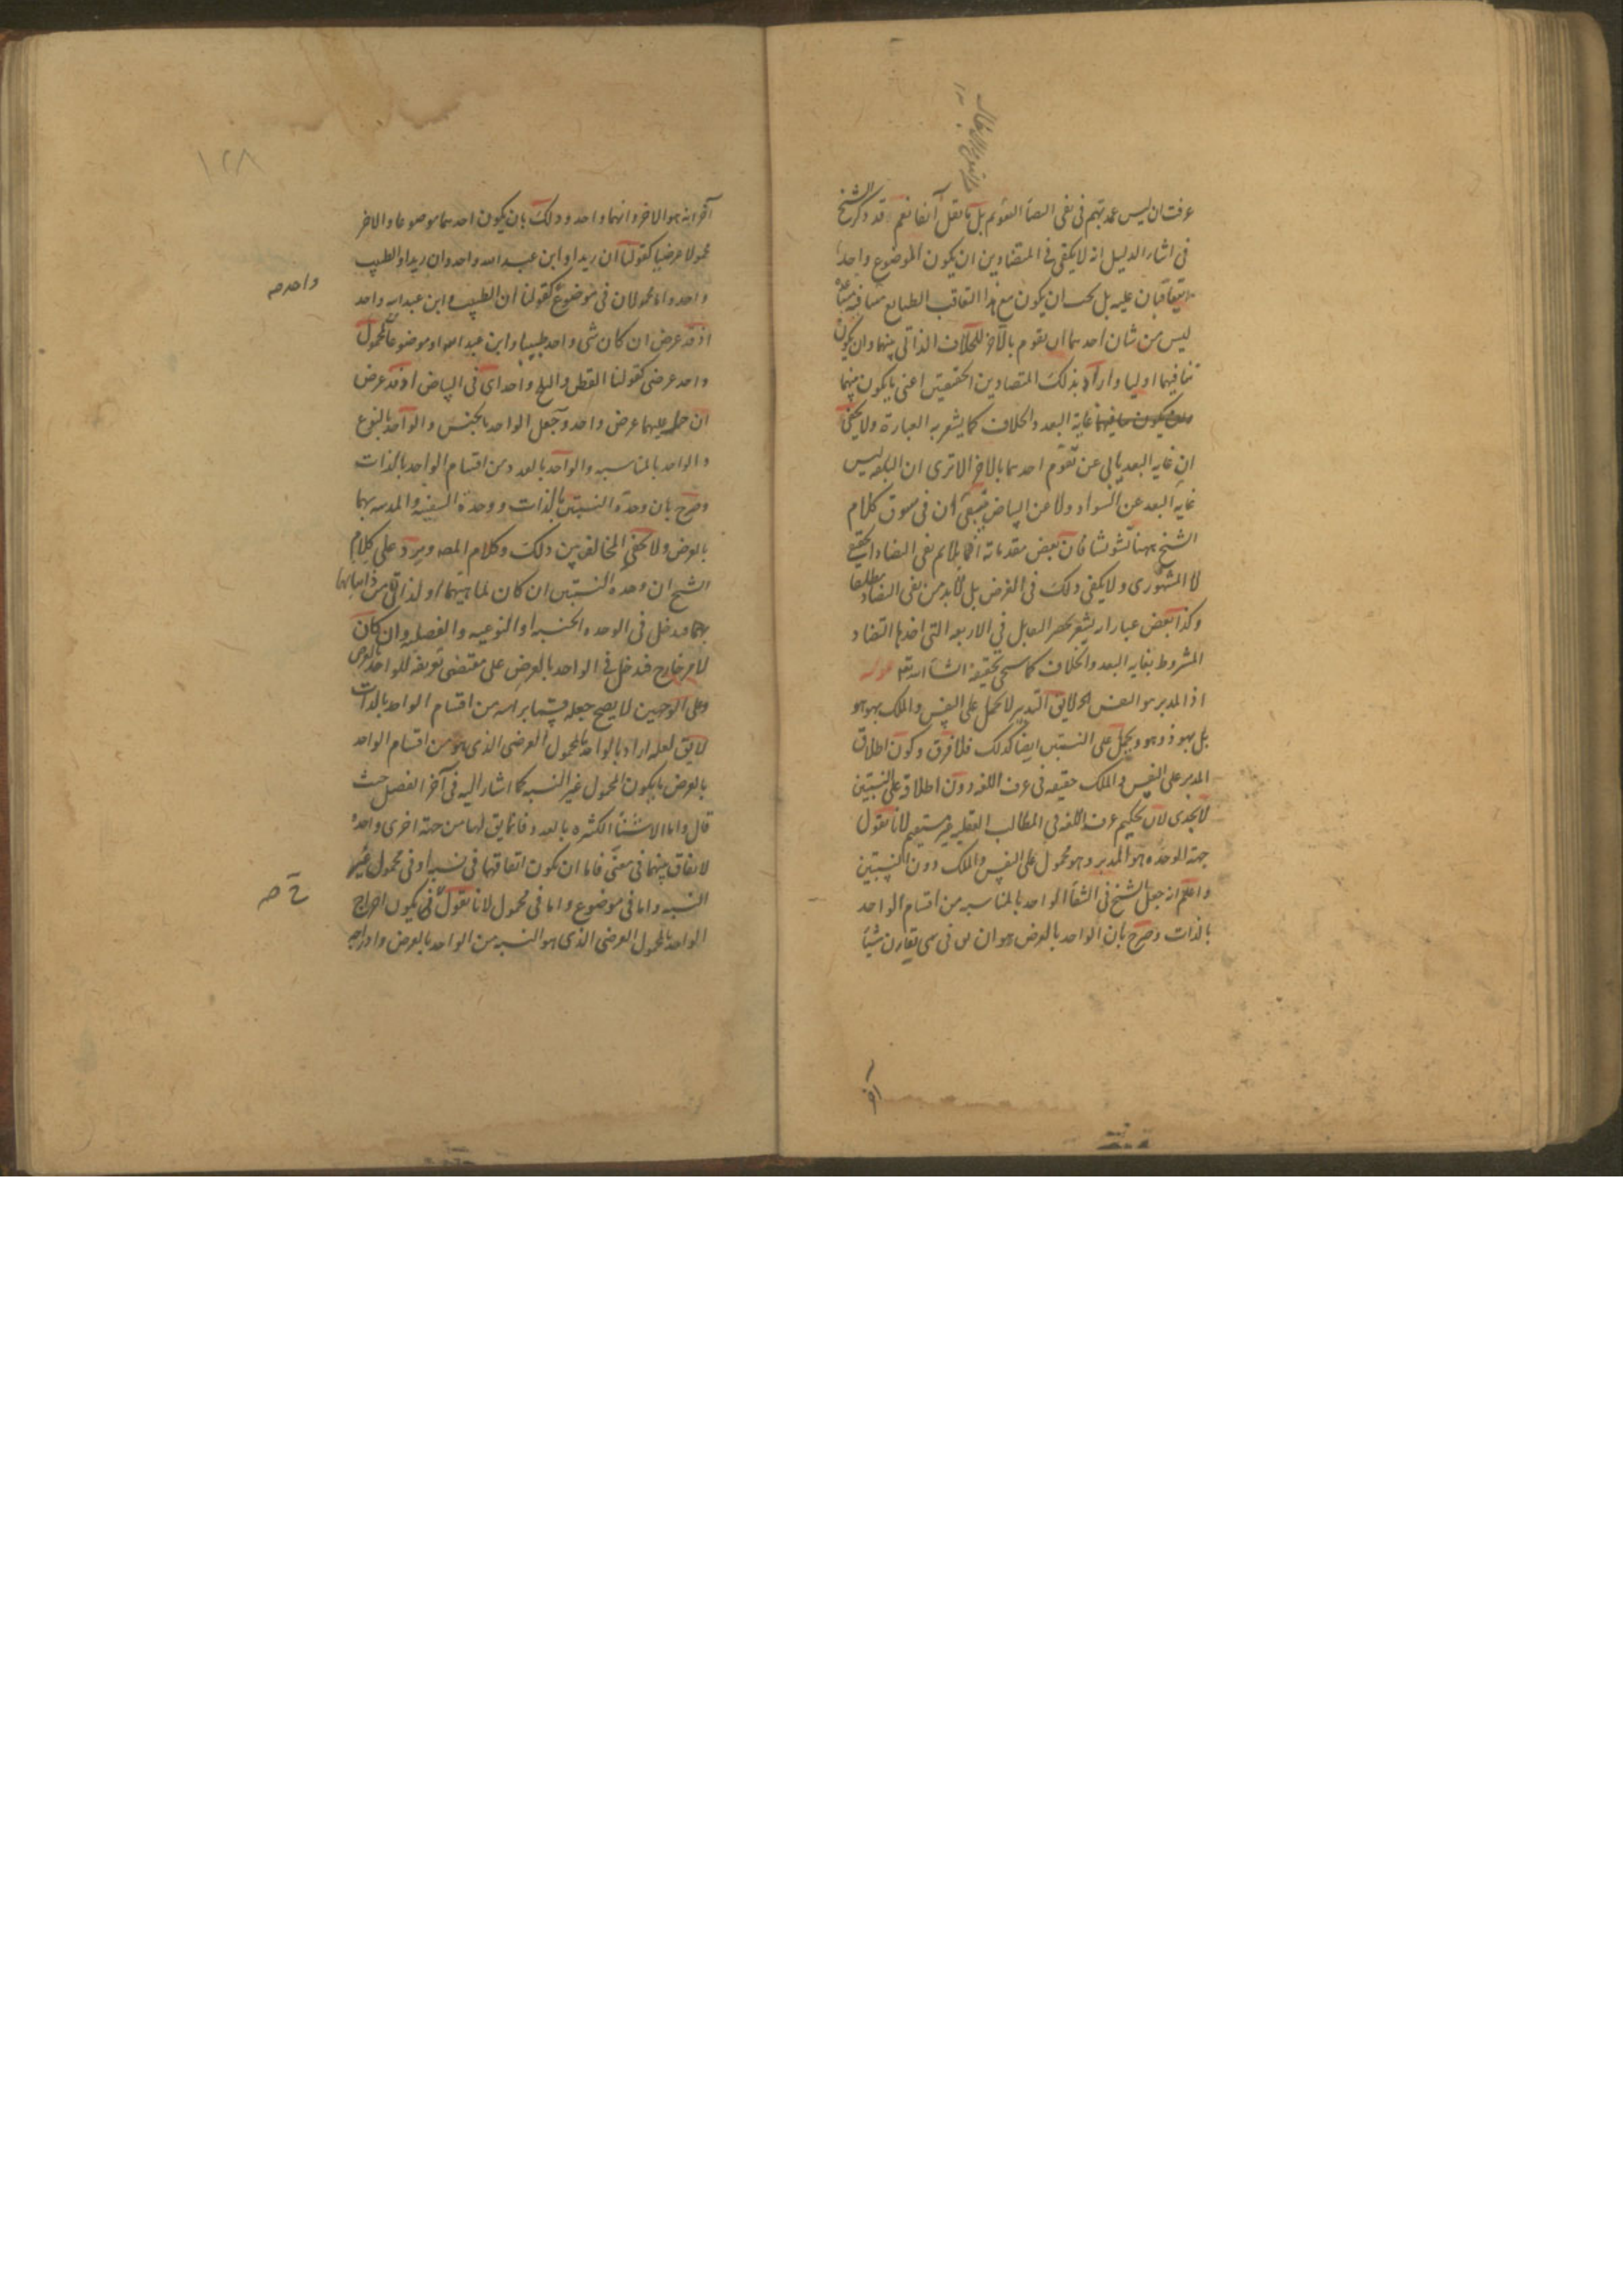 عرفت ان ليس عمدتهم فى نفى التضاد التقويم بل ما نقل آنفا نعم قد ذكر الشيخ
فى اثناء الدليل انه لا يكفى فى المتضادين ان يكون الموضوع واحدا
يتعاقبان عليه بل يجب ان يكون مع هذا التعاقب الطبايع متنافية متباعدة
ليس من شان احدهما ان يتقوم بالآخر للخلاف الذاتى بينهما وان يكون
تنافيهما اوليا واراد بذلك المتضادين الحقيقيين اعنى ما يكون بينهما
غاية البعد والخلاف كما يشعر به العبارة ولا يخفى
ان غاية البعد يابى عن تقوم احدهما بالاخر الا ترى ان البلقه ليس
غاية البعد عن السواد ولا عن البياض فبقى ان فى سوق كلام
الشيخ ههنا تشوشا فان بعض مقدماته انما يلايم نفى التضاد الحقيقى
لا المشهورى ولا يكفى ذلك فى الغرض بل لا بد من نفى التضاد مطلقا
وكذا بعض عباراته يشعر بحصر التقابل فى الاربعه التى احدها التضاد
المشروط بغاية البعد والخلاف كما سيجى تحقيقه انشاء الله تعالى قوله
اذ المدبر هو النفس الخ لا يق التدبير لا يحمل على النفس والملك بهو هو
بل بهو ذو هو ويحمل على النسبتين ايضا كذلك فلا فرق وكون اطلاق
المدبر على النفس والملك حقيقه فى عرف اللغه دون اطلاقه على النسبتين
لا يجدى لان تحكيم عرف اللغه فى المطالب العقليه غير مستقيم لانا نقول
جهة الوحده هو المدبر وهو محمول على النفس والملك دون النسبتين
واعلم انه جعل الشيخ فى الشفا الواحد بالمناسبه من اقسام الواحد
بالذات وصرح بان الواحد بالعرض هو ان يق فى شى يقارن شيئا
آخر
١٢٨
آخر انه هو الاخر وانهما واحد وذلك بان يكون احدهما موضوعا والاخر
محمولا عرضيا كقولنا ان زيدا وابن عبد الله واحد وان زيدا والطبيب
واحد واما محمولان فى موضوع كقولنا ان الطبيب وابن عبد الله واحد
واحد صح
اذ قد عرض ان كان شى واحد طبيبا وابن عبد الله او موضوعان لمحمول
واحد عرضى كقولنا القطن والثلج واحد اى فى البياض اذ قد عرض
ان حمل عليهما عرض واحد وجعل الواحد بالجنس والواحد بالنوع
والواحد بالمناسبه والواحد بالعدد من اقسام الواحد بالذات
وصرح بان وحدة النسبتين بالذات ووحدة السفينه والمدينه بهما
بالعرض ولا يخفى المخالفه بين ذلك وكلام المص ويرد على كلام
الشيخ ان وحده النسبتين ان كان لماهيتهما او لذاتى من ذاتياتهما
بهما فيدخل فى الوحده الجنسيه او النوعيه والفصليه وان كان
لامر خارج فدخل فى الواحد بالعرض على مقتضى تعريفه للواحد بالعرض
وعلى الوجهين لا يصح جعله قسما براسه من اقسام الواحد بالذات
لا يق لعله اراد بالواحد بالمحمول العرضى الذى هو من اقسام الواحد
بالعرض ما يكون المحمول غير النسبه كما اشار اليه فى آخر الفصل حيث
قال واما الاشياء الكثيره بالعدد فانما يق لها من جهة اخرى واحده
لاتفاق بينهما فى معنى فاما ان يكون اتفاقهما فى نسبه او فى محمول غير
النسبه واما فى موضوع واما فى محمول لانا نقول فح يكون اخراج
ح صح
الواحد بالمحمول العرضى الذى هو النسبه من الواحد بالعرض وادراجه